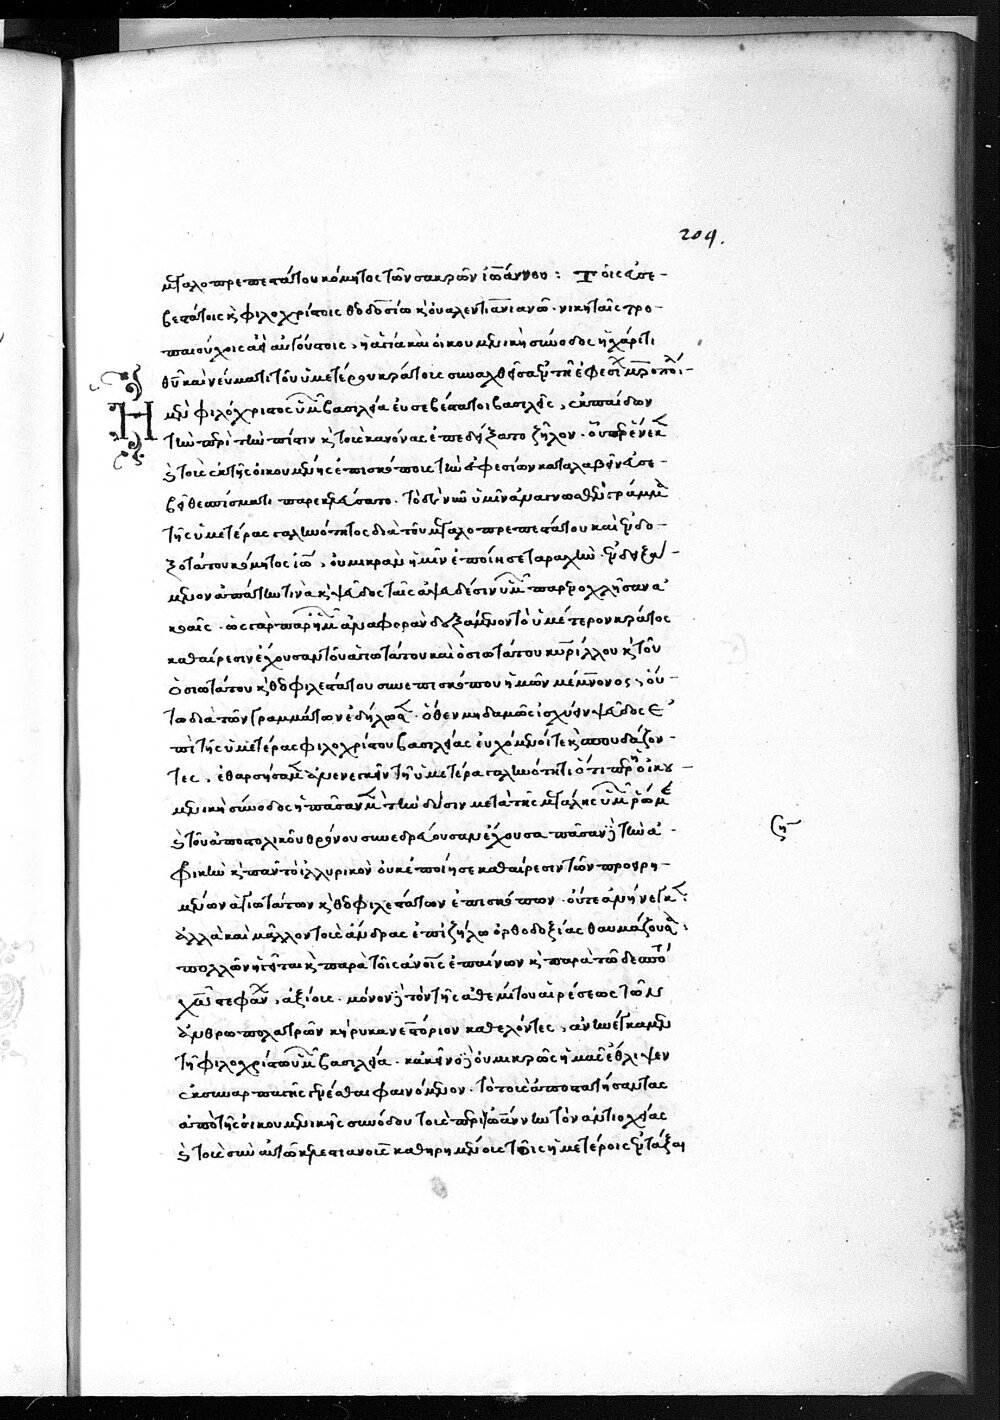 204.
μεγαλοπρεπεστάτου κόμητος τῶν σακρῶν ἰωάννου: Τοῖς εὐσε-
βεστάτοις κ φιλοχρίστοις θεοδοσίω κ οὐαλεντινιανῶ. νικηταῖς τρο-
παιούχοις ἀεὶ αὐγούστοις, ἡ ἁγία καὶ οἰκουμενικὴ σύνοδος ἡ χάριτι
θῦ καὶ νεύματι τοῦ ὑμετέρου κράτους συναχθεῖσα ἐν τῆ ἐφεσίων μητροπόλει-
Η μὲν φιλόχριστος ὑμῶν βασιλεία εὐσεβέστατοι βασιλεῖς, ἐκ παίδων
τὴν περὶ τὴν πίστιν κ τοὺς κανόνας ἐπεδείξατο ζῆλον. οὗπερ ἕνεκεν
κ τοὺς ἐκ τῆς οἰκουμένης ἐπισκόπους τὴν ἐφεσίων καταλαβεῖν εὐσε-
βεῖ θεσπίσματι παρεκελεύσατο. τὸ δὲ νῦν ὑμῖν ἀναγνωσθὲν γράμμα
τῆς ὑμετέρας γαληνότητος διὰ τοῦ μεγαλοπρεπεστάτου καὶ ἐνδο-
ξοτάτου κόμητος ἰω, οὐ μικρὰν ἡμῖν ἐποίησε ταραχήν. ἐνδειξά-
μενον ἀπάτην τινὰ κ ψεῦδος ταῖς ἀψευδέσιν ὑμῶν παρενοχλῆσαν ἀ
κοαῖς. ὡς γὰρ παρ' ἡμῶν ἀναφορὰν δεξάμενον τὸ ὑμέτερον κράτος
καθαίρεσιν ἔχουσαν τοῦ ἁγιωτάτου καὶ ὁσιωτάτου κυρίλλου κ τοῦ
ὁσιωτάτου κ θεοφιλεστάτου συνεπισκόπου ἡμῶν μέμνονος, οὕ-
τω διὰ τῶν γραμμάτων ἐδήλωσεν. ὅθεν μηδαμῶς ἰσχύειν ψεῦδος ἐ
πὶ τῆς ὑμετέρας φιλοχρίστου βασιλείας εὐχόμενοί τε κ σπουδάζον-
τες, ἐθαρσήσαμεν ἀνενεγκεῖν τῆ ὑμετέρα γαληνότητι ὅτιπερ ἡ οἰκου-
μενικὴ σύνοδος ἡ πᾶσαν μὲν τὴν δύσιν μετὰ τῆς μεγάλης ὑμῶν ῥώμης
κ τοῦ ἀποστολικοῦ θρόνου συνεδρεύουσαν ἔχουσα πᾶσαν δὲ τὴν ἀ-
φρικὴν κ πᾶν τὸ ἰλλυρικὸν οὐκ ἐποίησε καθαίρεσιν τῶν προειρη-
μένων ἁγιωτάτων κ θεοφιλεστάτων ἐπισκόπων. οὔτε ἀνήνεγκεν:
ἀλλὰ καὶ μᾶλλον τοὺς ἄνδρας ἐπὶ ζήλω ὀρθοδοξίας θαυμάζουσα:
πολλῶν ἡγεῖται κ παρὰ τοῖς ἀνοις ἐπαίνων κ παρὰ τῶ δεσπότη
χῶ στεφάνων, ἀξίους. μόνον δὲ τὸν τῆς ἀθεμίτου αἱρέσεως τῶν
ἀνθρωπολατρῶν κήρυκα νεστόριον καθελόντες, ἀνηνέγκαμεν
τῆ φιλοχρίστω ὑμῶν βασιλεία. κἀκεῖνο δὲ οὐ μικρῶς ἡμᾶς ἔθλιψεν
ἐκ συναρπαγῆς γενέσθαι φαινόμενον. τὸ τοὺς ἀποστατήσαντας
ἀπὸ τῆς οἰκουμενικῆς συνόδου τοὺς περὶ ἰωάννην τὸν ἀντιοχείας
κ τοὺς σὺν αὐτῶ κελεστιανοὺς καθηρημένους τοῖς ἡμετέροις ἐντάξαι